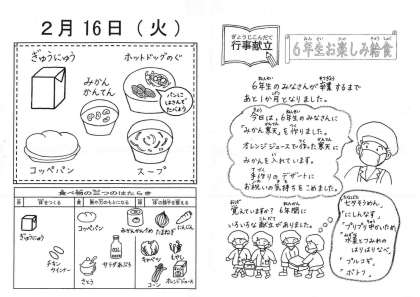 2月16日（火）
ぎゅうにゅう
ホットドッグのぐ
みかん
かんてん
パンに
はさんで
たべよう
コッペパン
スープ
食べ物の三つのはたらき
をつくる
熱や力のもとになる
の調子を整える
ぎゅうにゅう
チキン
ウインナー
コッペパン
さとう
サラダあぶら
みかんかんづめ
たまねぎ
にんじん
キャベツ
しめじ
コーン
オレンジジュース
ぎょうじこんだて
行事献立
6年生お楽しみ給食
6年生のみなさんが卒業するまで
あと1か月となりました。
今日は、6年生のみなさんに
「みかん寒天」を作りました。
オレンジジュースで作った寒天に
みかんを入れています。
手作りのデザートに
お祝いの気持ちをこめました。
覚えていますか？6年間に
いろいろな献立がありました。
七夕そうめん、
にしんなす、
プリプリ中のいため、
水菜とつみれの
はりはりなべ、
プルコギ、
ポトフ、